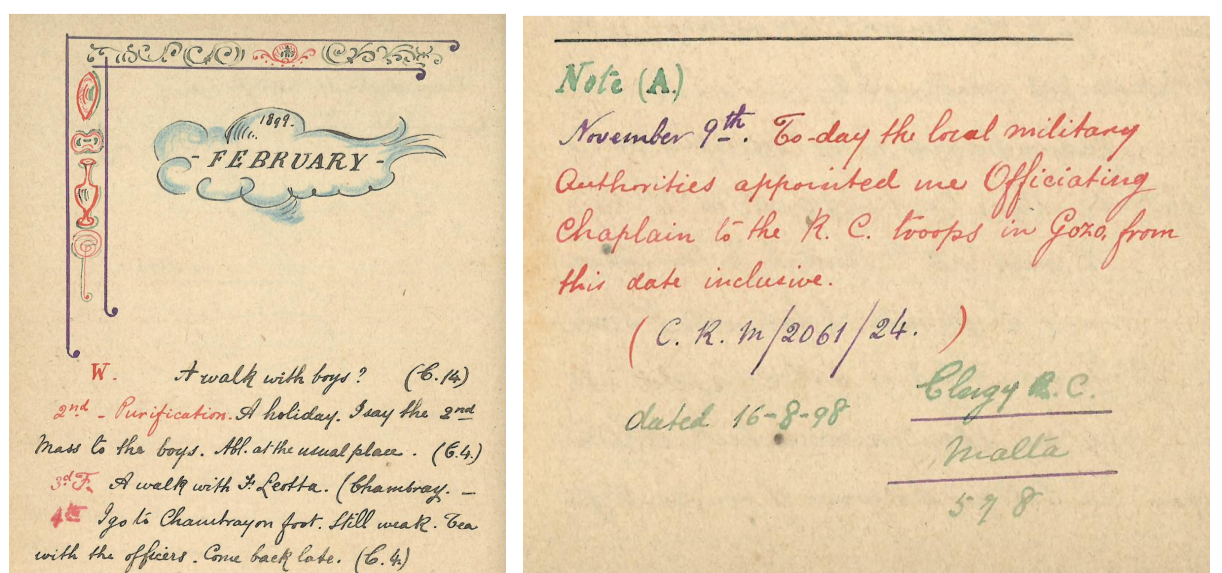 1899.
- FEBRUARY -
W. A walk with boys? (C.14)
2nd - Purification. A holiday. I say the 2nd
Mass to the boys. Abl. at the usual place. (C.4.)
3d F. A walk with F. Leotta. (Chambray. -
4th I go to Chambray on foot. Still weak. Tea
with the officers. Come back late. (C.4.)
Note (A.)
November 9th. To-day the local military
Authorities appointed me Officiating
Chaplain to the R. C. troops in Gozo, from
this date inclusive.
(C. R. M/2061/24. )
dated 16-8-98
Clergy R. C.
Malta
578